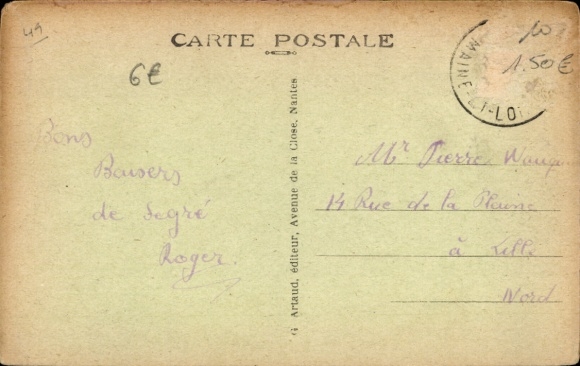 49
CARTE POSTALE
6€
10
1.50€
MAINE-ET-LOI
Bons
Baisers
de Segré
Roger.
G. Artaud, éditeur, Avenue de la Close, Nantes
Mr Pierre
14 Rue de la Plaine
à Lille
Nord